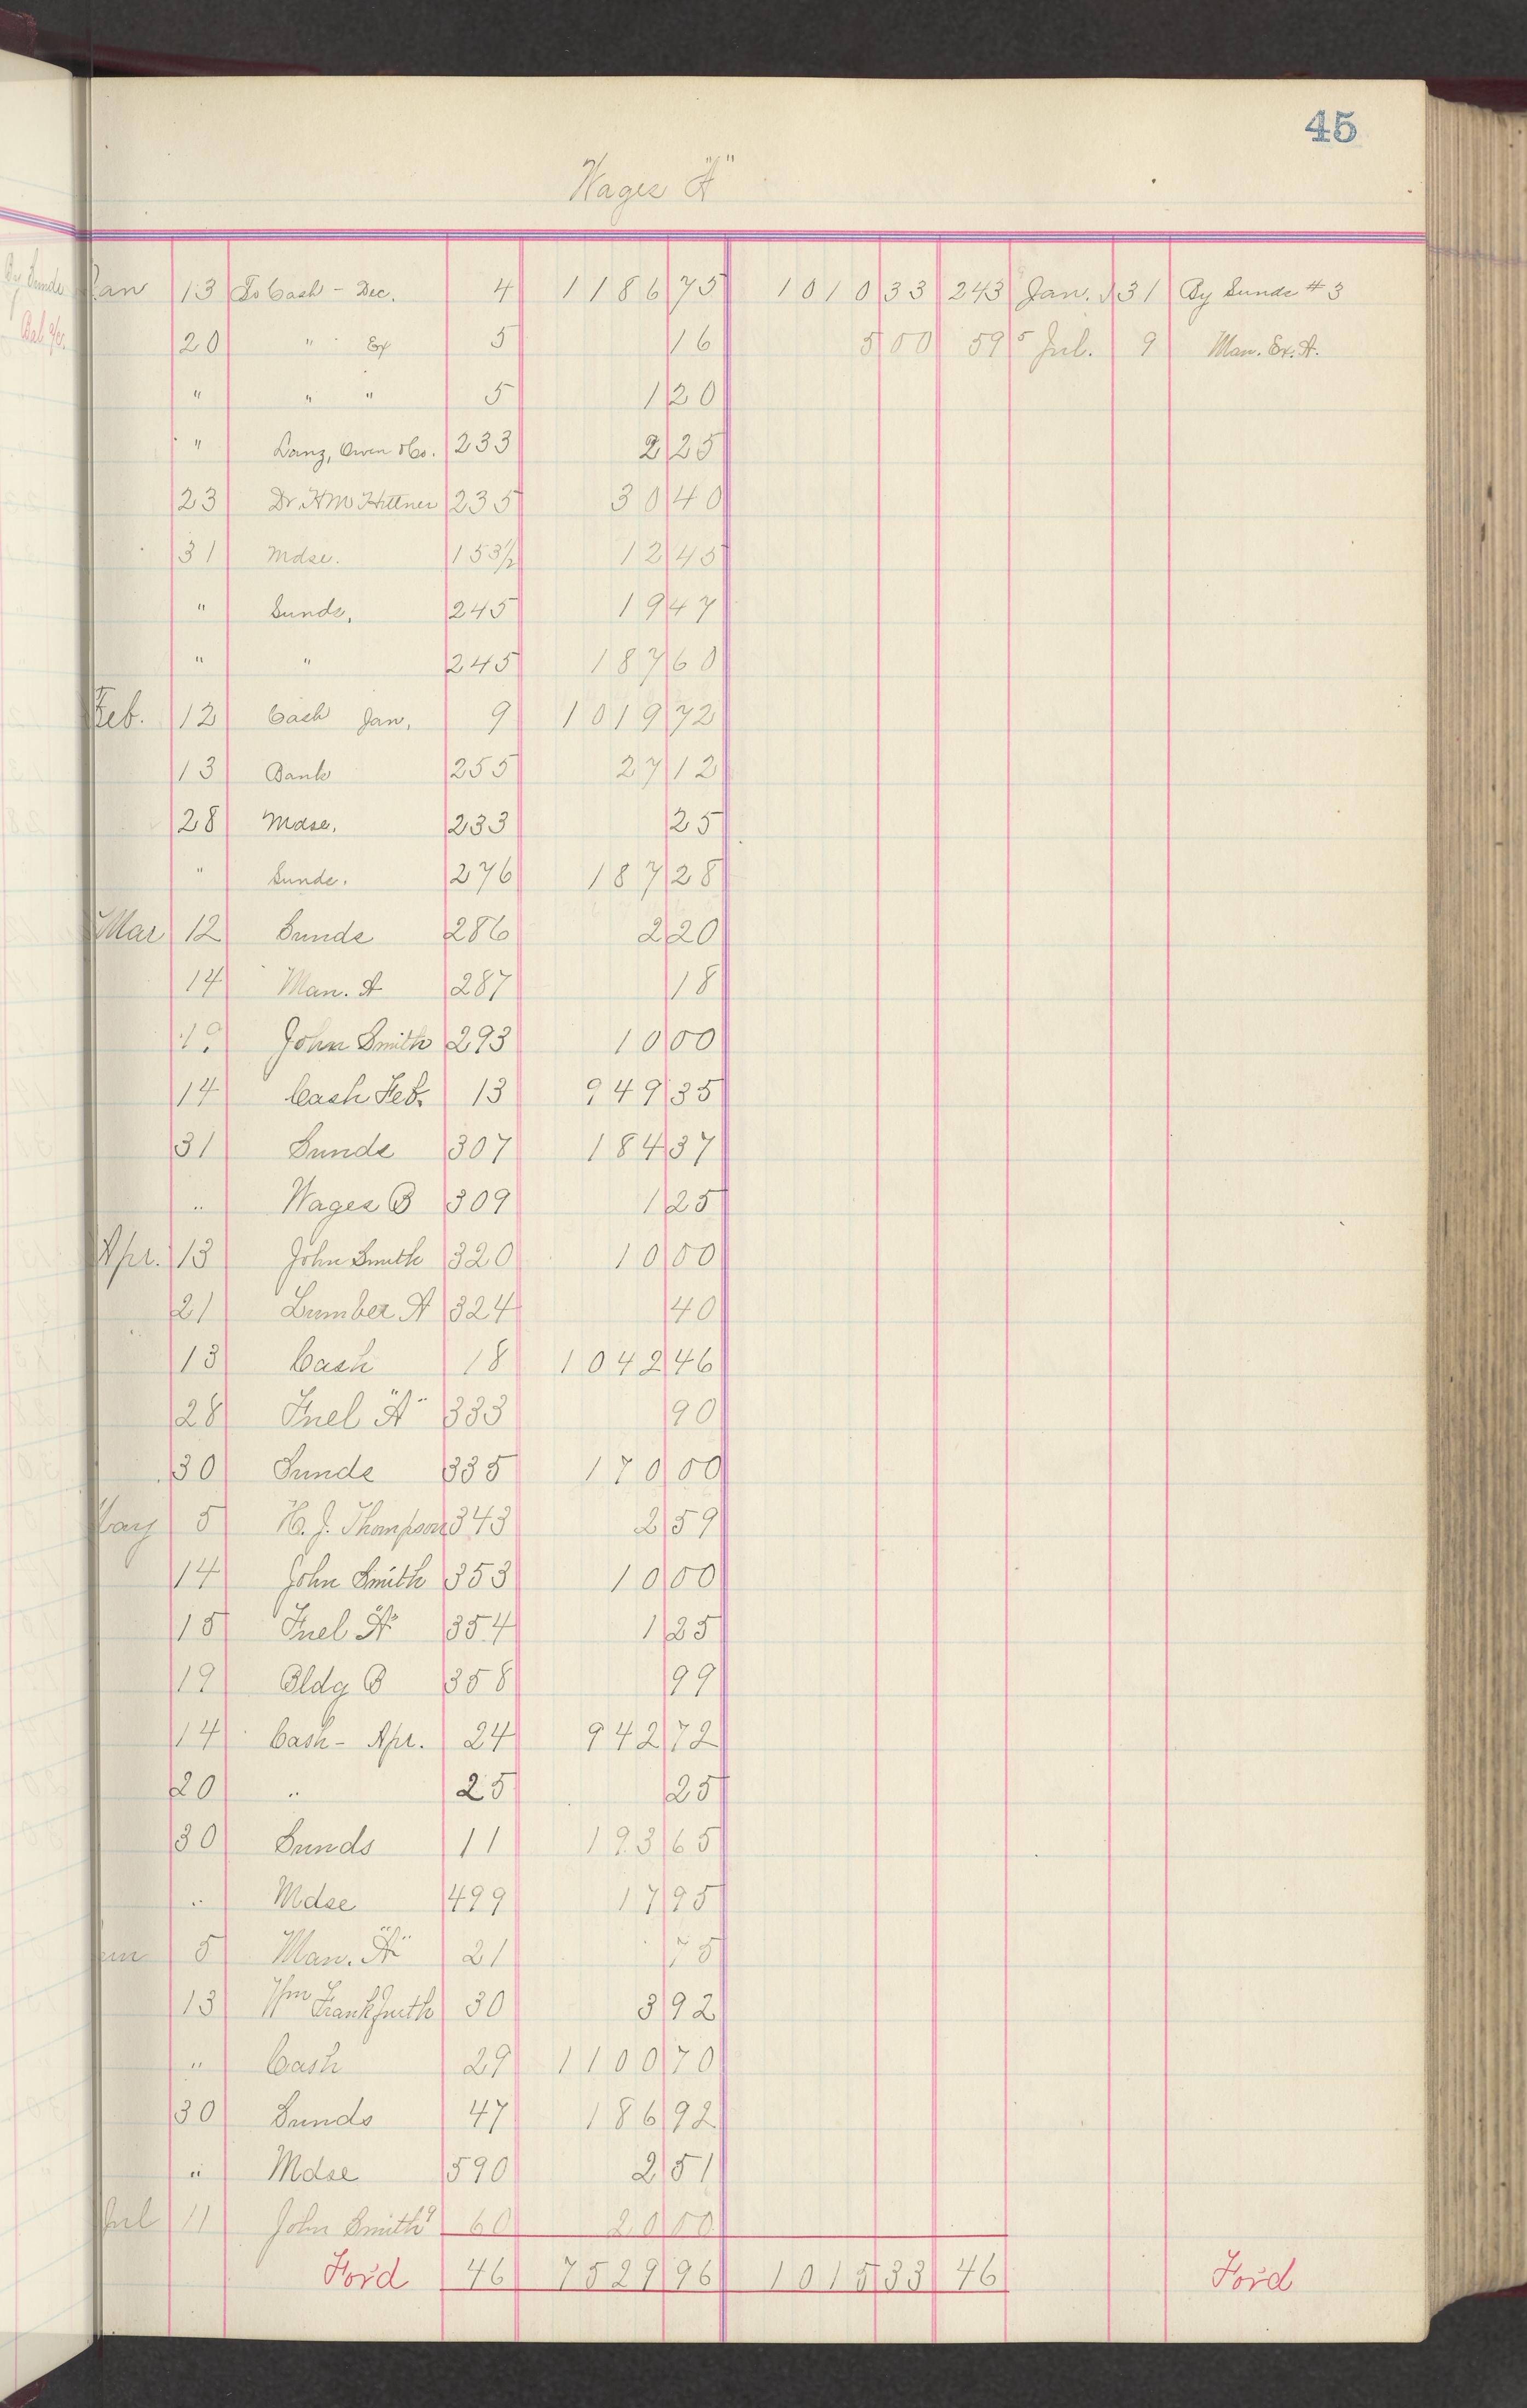 45
Wages "A"
Jan 13 To Cash - Dec. 4 1186 75 1010 33 243 Jan. 31 By Sunds #3
20 " Ex 5 16 5 00 59 Jul. 9 Man. Ex. A.
" " " 5 1 20
" Danz, Owen & Co. 233 2 25
23 Dr. HM Hittner 235 30 40
31 Mdse. 153½ 12 45
" Sunds. 245 19 47
" " 245 187 60
Feb. 12 Cash Jan. 9 1019 72
13 Bank 255 27 12
28 Mdse. 233 25
" Sunds. 276 187 28
Mar 12 Sunds 286 2 20
14 Man. A 287 18
John Smith 293 10 00
14 Cash Feb. 13 949 35
31 Sunds 307 184 37
" Wages B 309 1 25
Apr. 13 John Smith 320 10 00
21 Lumber A 324 40
13 Cash 18 1042 46
28 Fuel "A" 333 90
30 Sunds 335 170 00
May 5 H. J. Thompson 343 2 59
14 John Smith 353 10 00
15 Fuel "A" 354 1 25
19 Bldg B 358 99
14 Cash - Apr. 24 942 72
20 " 25 25
30 Sunds 11 193 65
" Mdse 499 17 95
Jun 5 Man. "A" 21 75
13 Wm Frankfurth 30 3 92
" Cash 29 1100 70
30 Sunds 47 186 92
" Mdse 590 2 51
Jul 11 John Smith 60 20 00
For'd 46 7529 96 1015 33 46 For'd
By Sunds
Bal. %